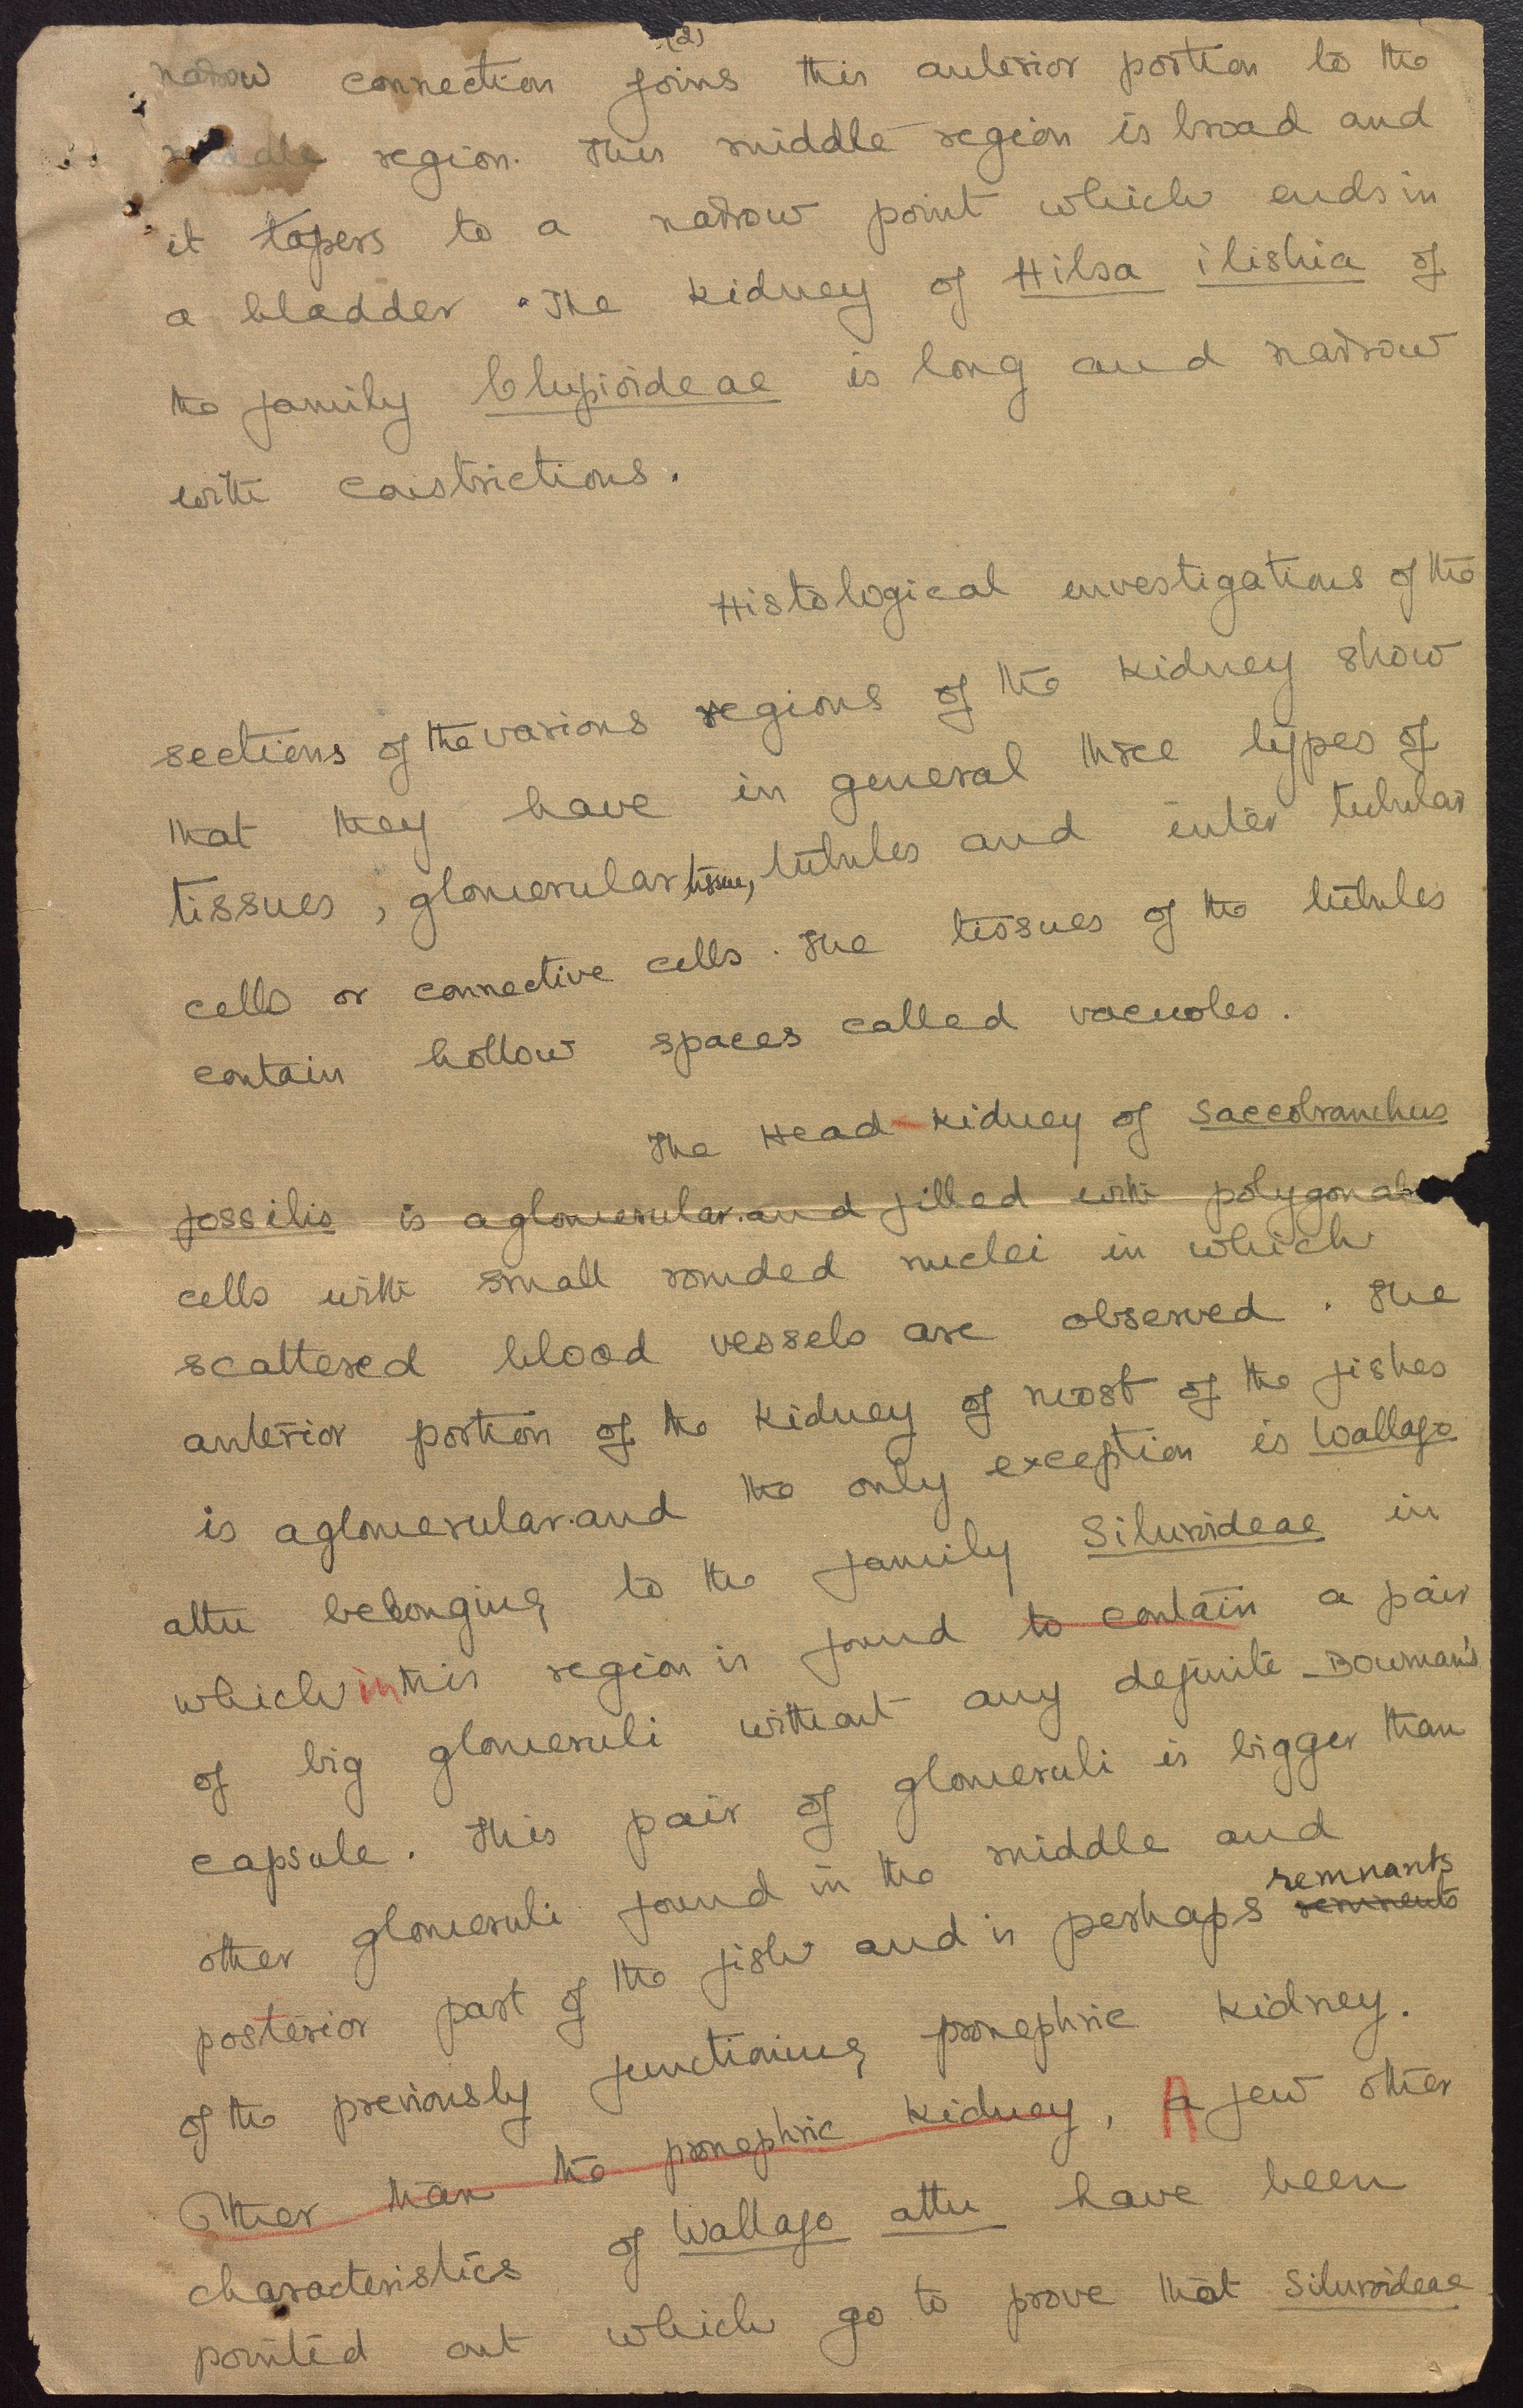 (2)
narrow connection joins this anterior portion to the
middle region. This middle region is broad and
it tapers to a narrow point which ends in
a bladder. The kidney of Hilsa ilishia of
the family Clupioideae is long and narrow
with caistrictions.
Histological investigations of the
sections of the various regions of the kidney show
that they have in general three types of
tissues, glomerular tissue, tubules and inter tubular
cells or connective cells. The tissues of the tubules
contain hollow spaces called vacuoles.
The Head-kidney of Saccobranchus
fossilis is aglomerular and filled with polygonal
cells with small rounded nuclei in which
scattered blood vessels are observed. The
anterior portion of the kidney of most of the fishes
is aglomerular and the only exception is Wallago
attu belonging to the family Siluroideae in
which in this region is found to contain a pair
of big glomeruli without any definite Bowman's
capsule. This pair of glomeruli is bigger than
other glomeruli found in the middle and
posterior part of the fish and is perhaps remnants
of the previously functioning pronephric kidney.
Other than the pronephric kidney, A few other
characteristics of Wallago attu have been
pointed out which go to prove that Siluroideae